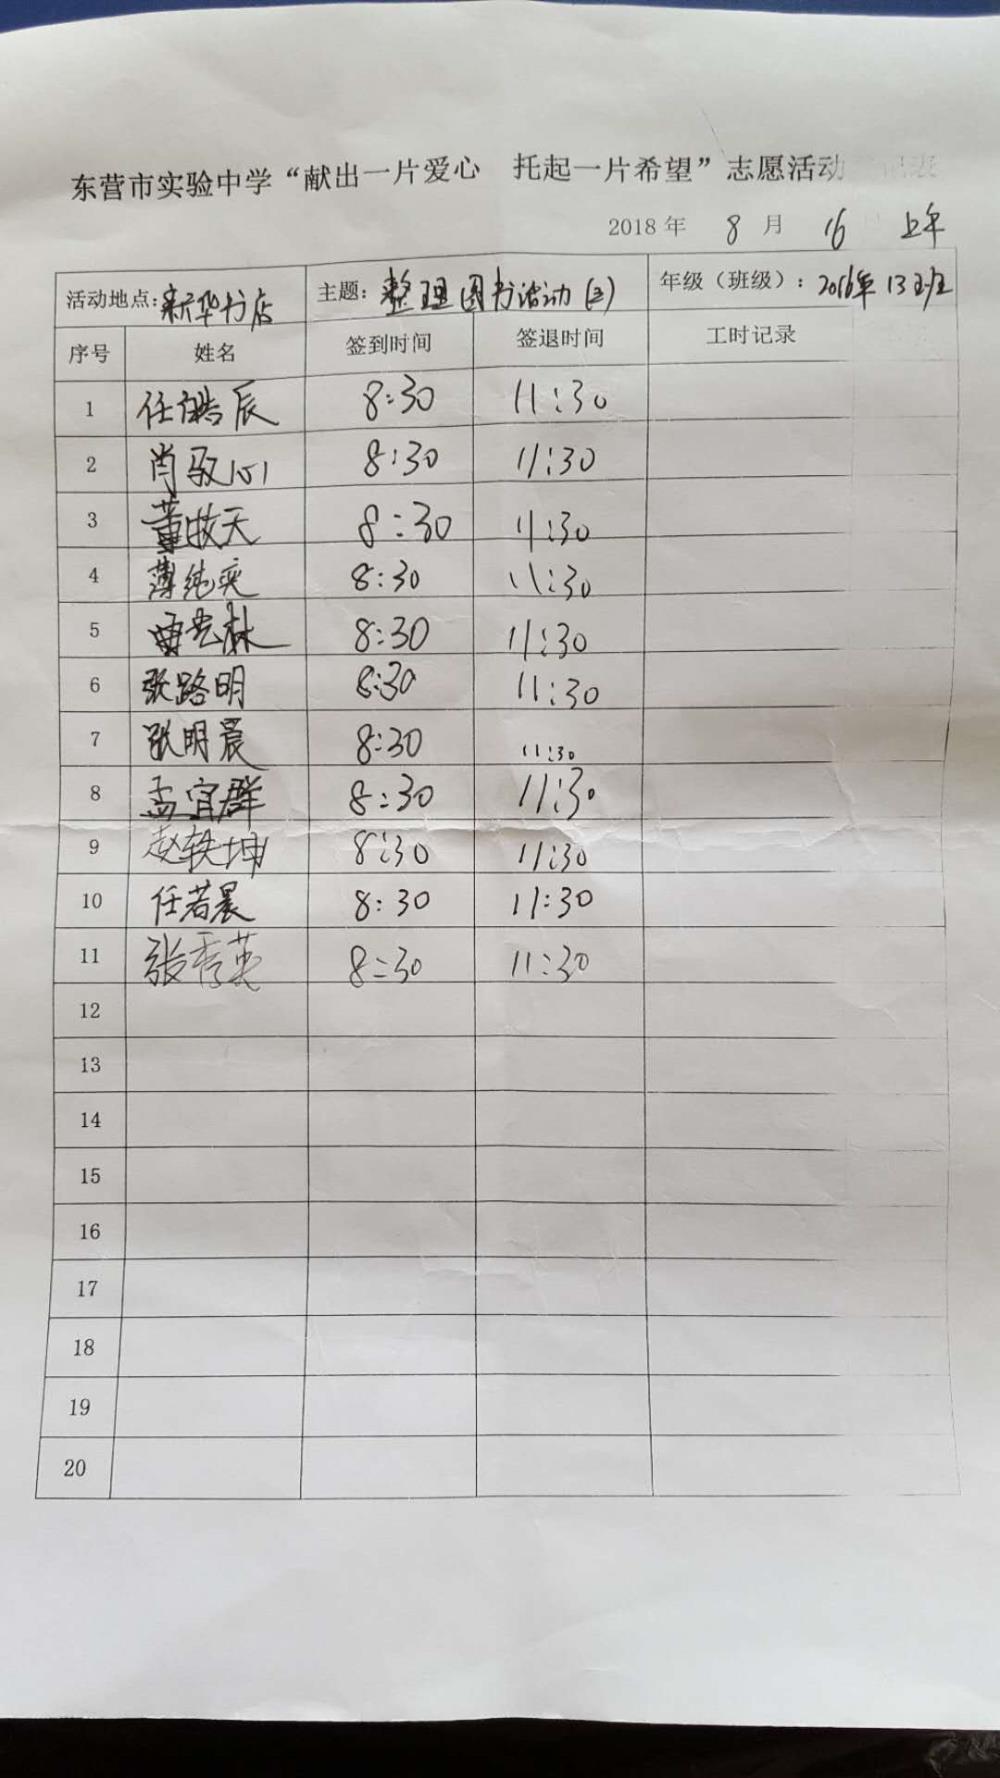 东营市实验中学“献出一片爱心 托起一片希望”志愿活动
2018 年 8 月 16 上午
活动地点: 新华书店 主题: 整理图书活动 年级（班级）: 2016年 13班
序号 姓名 签到时间 签退时间 工时记录
1 任皓辰 8:30 11:30
2 肖 8:30 11:30
3 董牧天 8:30 11:30
4 薄纯爽 8:30 11:30
5 林 8:30 11:30
6 张路明 8:30 11:30
7 张明晨 8:30 11:30
8 孟宜群 8:30 11:30
9 赵轶坤 8:30 11:30
10 任若晨 8:30 11:30
11 张秀英 8:30 11:30
12
13
14
15
16
17
18
19
20